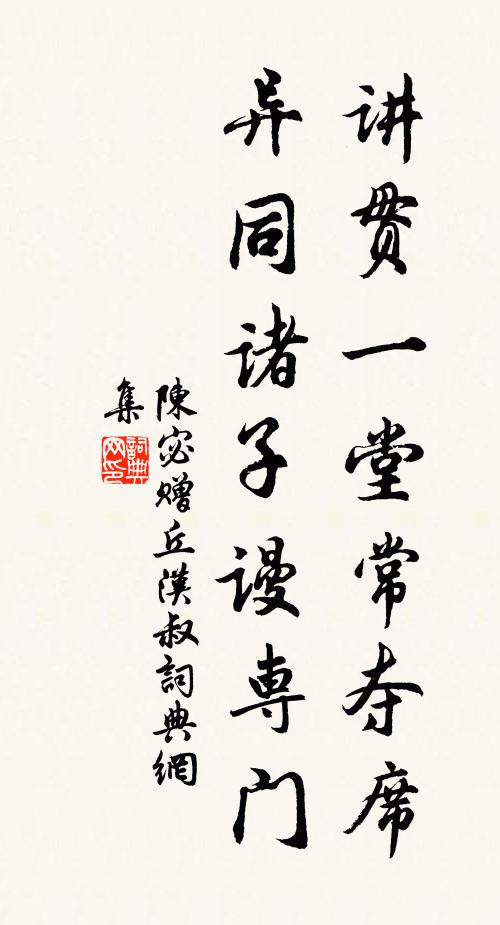 讲贯一堂常夺席
异同诸子谩専门
陳宓赠丘漢叔詞典網
集
詞典网印